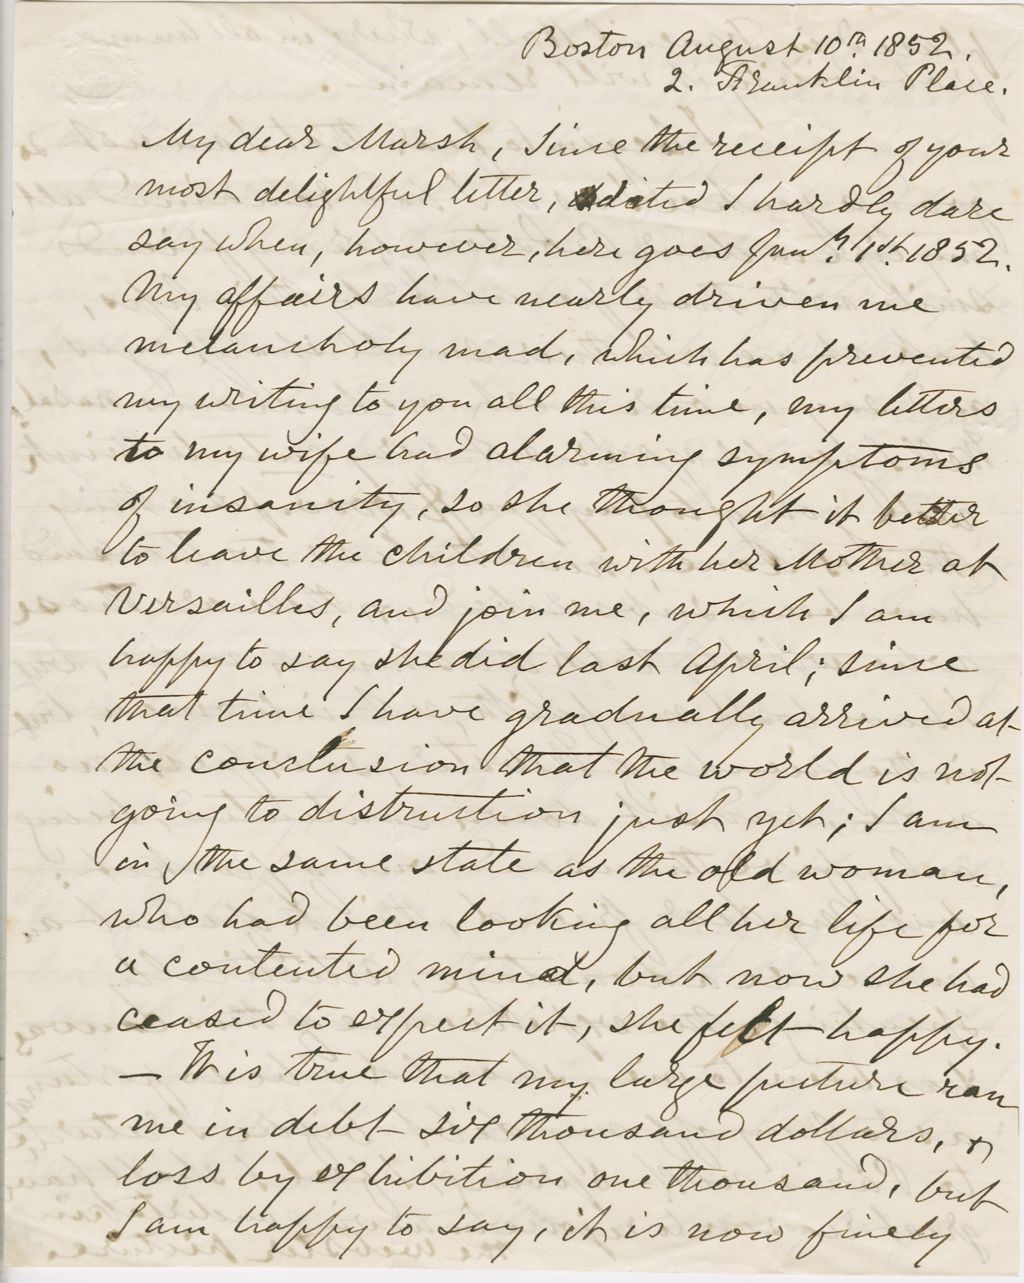 Boston August 10th 1852.
2. Franklin Place.
My dear Marsh, Since the receipt of your
most delightful letter, dated I hardly dare
say when, however, here goes Jany. 1st. 1852.
My affairs have nearly driven me
melancholy mad, which has prevented
my writing to you all this time, my letters
to my wife had alarming symptoms
of insanity, so she thought it better
to leave the children with her Mother at
Versailles, and join me, which I am
happy to say she did last April; since
that time I have gradually arrived at
the conclusion that the world is not
going to distruction just yet; I am
in the same state as the old woman,
who had been looking all her life for
a contented mind, but now she had
ceased to expect it, she felt happy.
— It is true that my large picture ran
me in debt six thousand dollars, &
loss by exhibition one thousand, but
I am happy to say, it is now finely